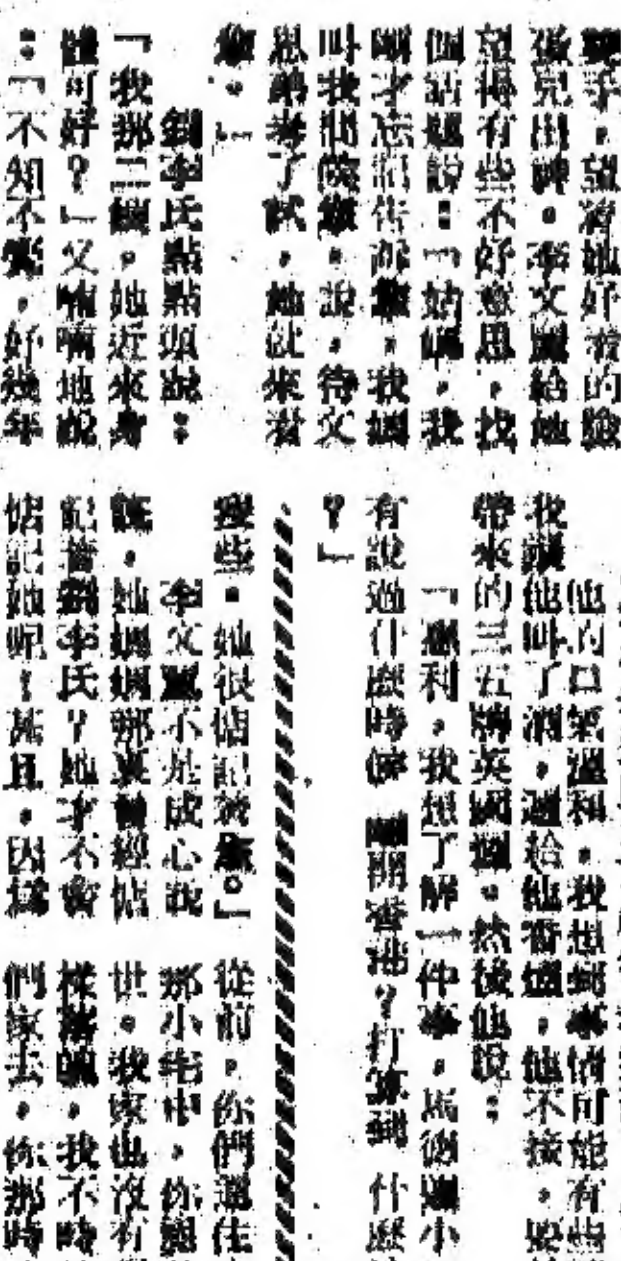 手。望着她好看的臉
孩兒出神。李文鳳給她
望得有些不好意思，找
個話題說：「姑媽，我
剛才忘記告訴您，我媽
叫我問候您。說，待父
思鵑考了試，她就來看
您。」
劉李氏點點頭說：
「我那二嫂，她近來身
體可好？」又喃喃地說
：「不知不覺，好幾年
他的口氣溫和。我想到事情可能有些
我讓他叫了酒，遞給他香煙，他不接。要
帶來的三五牌英國煙。然後他說：
「利，我想了解一件事，馬德小
有說過什麼時候離開香港？打算到什麼
？」
瘦些。她很惦記着您。」
李文鳳不是成心說
謊。她媽媽那裏會經惦
記着劉李氏？她才不會
惦記她呢！甚且，因爲
從前，你們還住
那小宅中，你
世。我家也沒有
樣落，我不時
們家去，你那時